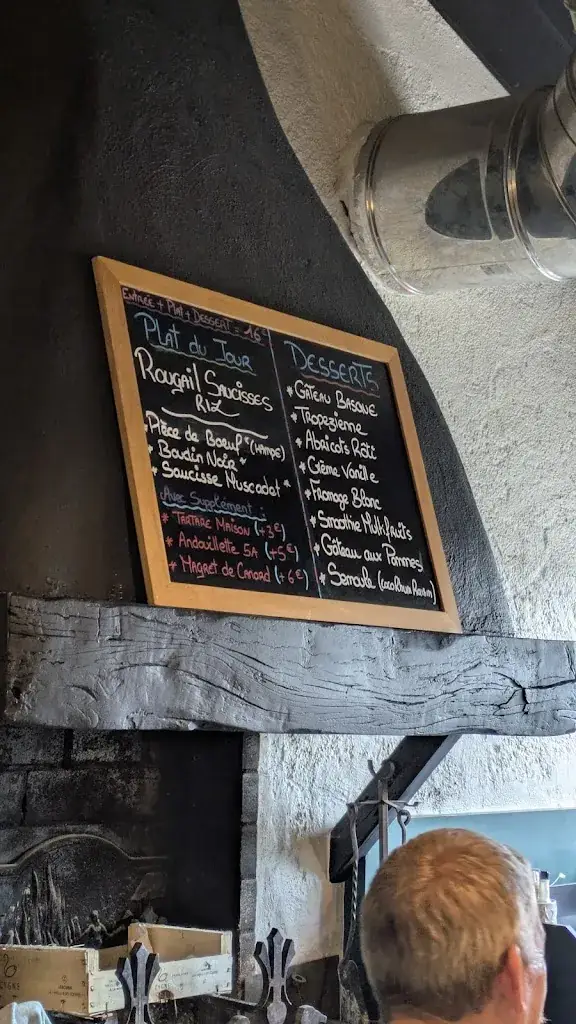 Entrée + Plat + Dessert = 16€
Plat du Jour
Rougail Saucisses
Riz
* Pièce de Boeuf (Hampe)
* Boudin Noir *
* Saucisse Muscadet *
Avec Supplément :
* Tartare Maison (+3€)
* Andouillette 5A (+5€)
* Magret de Canard (+6€)
Desserts
* Gâteau Basque
* Tropezienne
* Abricots Rôti
* Crème Vanille
* Fromage Blanc
* Smoothie Multifruits
* Gâteau aux Pommes
* Semoule (coco Rhum Raisin)